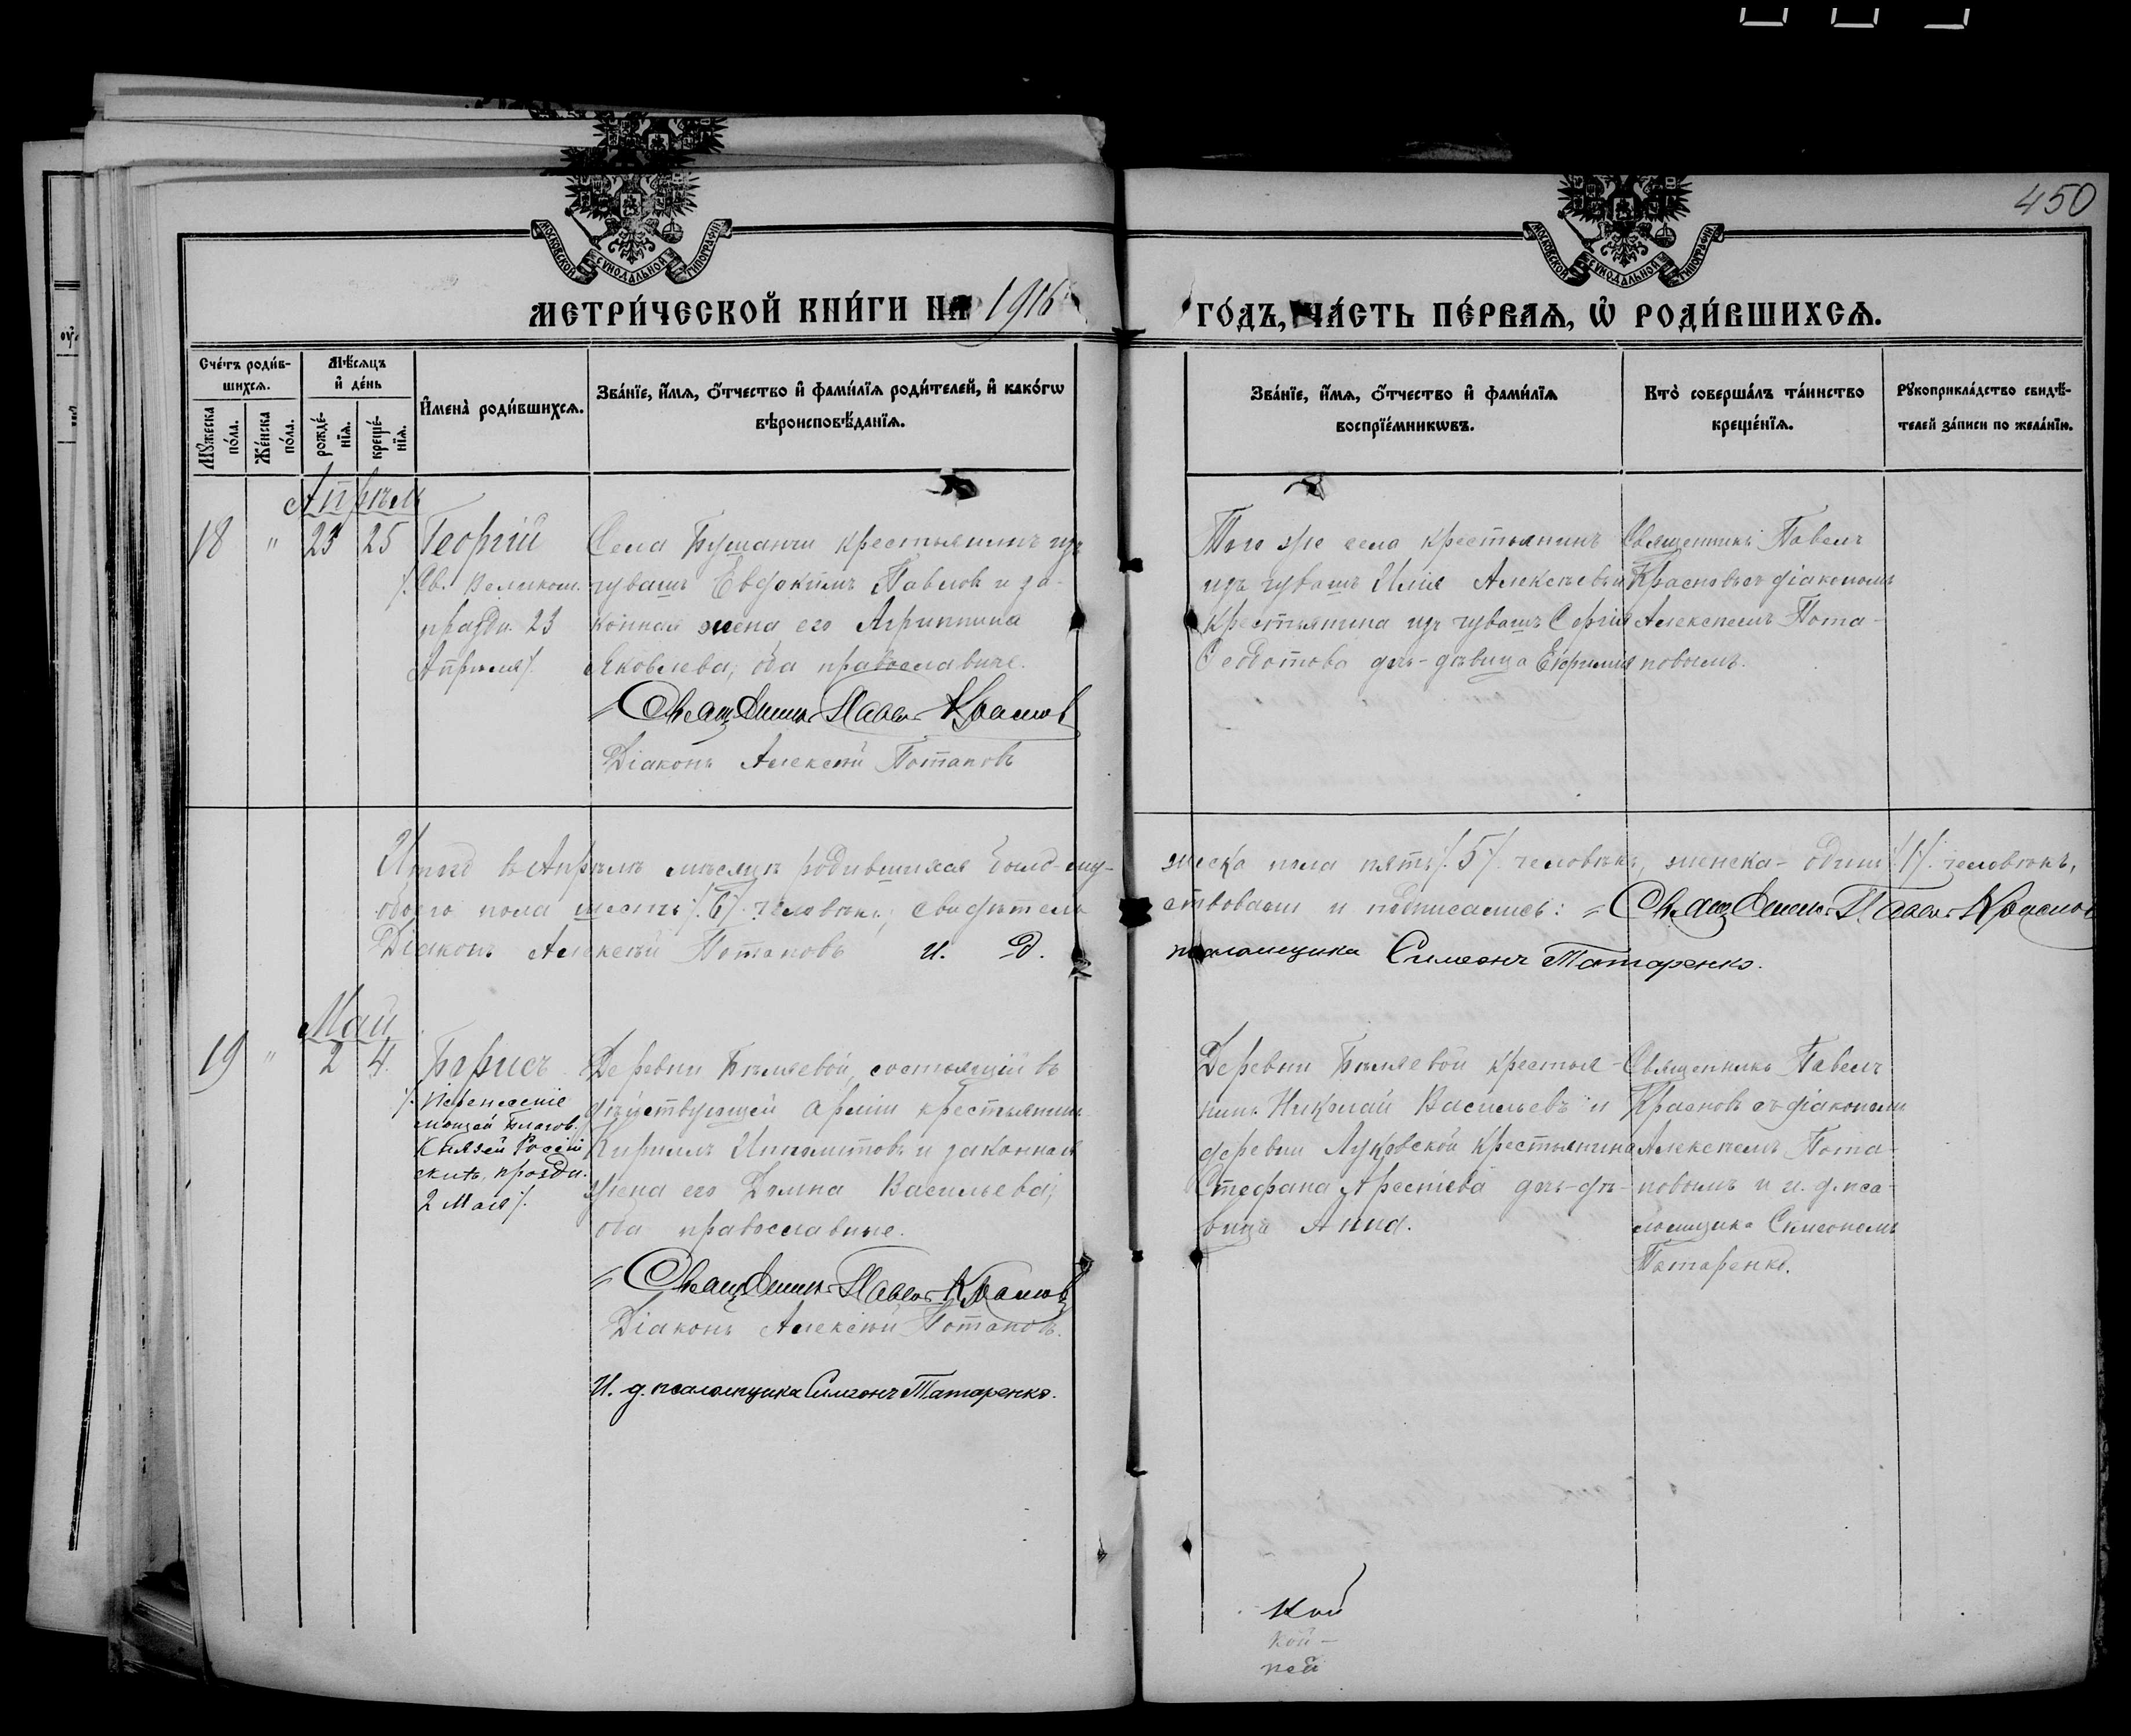 450
МОСКОВСКОЙ СУНОДАЛЬНОЙ ТИПОГРАФІИ
МОСКОВСКОЙ СУНОДАЛЬНОЙ ТИПОГРАФІИ
МЕТРИ́ЧЕСКОЙ КНИ́ГИ НА 1916
ГО́ДЪ, ЧА́СТЬ ПЕ́РВАѦ, Ѡ҆ РОДИ́ВШИХСѦ.
Сче́тъ роди́в-
шихсѧ.
Мꙋ́жеска по́ла.
Же́нска по́ла.
Мѣ́сѧцъ
и҆ де́нь
рожде́-
нїѧ.
креще́-
нїѧ.
И҆мена̀ роди́вшихсѧ.
Зва́нїе, и҆́мѧ, ѻ҆́тчество и҆ фами́лїѧ роди́телей, и҆ како́гѡ
вѣроисповѣ́данїѧ.
Зва́нїе, и҆́мѧ, ѻ҆́тчество и҆ фами́лїѧ
воспрїе́мникѡвъ.
Кто̀ соверша́лъ та́инство
креще́нїѧ.
Рꙋкоприкла́дство свидѣ́-
телей за́писи по жела́нїю.
Апрѣль
18 " 23 25 Георгій
/. Св. Великом.
праздн. 23
Апрѣля /.
Села крестьянинъ изъ
чувашъ Евдокимъ Павловъ и за-
конная жена его Агриппина
Яковлева; оба православные.
Священникъ Павелъ Красновъ
Діаконъ Алексѣй Потаповъ
Того же села крестьянинъ
изъ чувашъ Илія Алексѣевъ и
крестьянина изъ чувашъ Сергія
Ѳеодотова дочь-дѣвица Евфимія
Священникъ Павелъ
Красновъ съ діакономъ
Алексѣемъ Пота-
повымъ.
Итого въ Апрѣлѣ мѣсяцѣ родившихся было - му-
жеска пола пять /. 5 /. человѣкъ, женска - одинъ /. 1 /. человѣкъ,
обоего пола шесть /. 6 /. человѣкъ; свидѣтель-
ствовали и подписались: Священникъ Павелъ Красновъ
Діаконъ Алексѣй Потаповъ и. д.
псаломщика Симеонъ Татаренко.
Май
19 " 2 4. Борисъ
/. Перенесеніе
мощей Благов.
Князей Россій
скихъ, праздн.
2 Мая /.
Деревни Бѣляевой, состоящій въ
дѣйствующей арміи крестьянинъ
Кириллъ Ипполитовъ и законная
жена его Домна Васильева;
оба православные.
Священникъ Павелъ Красновъ
Діаконъ Алексѣй Потаповъ.
И. д. псаломщика Симеонъ Татаренко.
Деревни Бѣляевой крестья-
нинъ Николай Васильевъ и
деревни Луковской крестьянина
Стефана Арсеніева дочь-дѣ-
вица Анна.
Священникъ Павелъ
Красновъ съ діакономъ
Алексѣемъ Пота-
повымъ и и. д. пса-
ломщика Симеономъ
Татаренко.
кой -